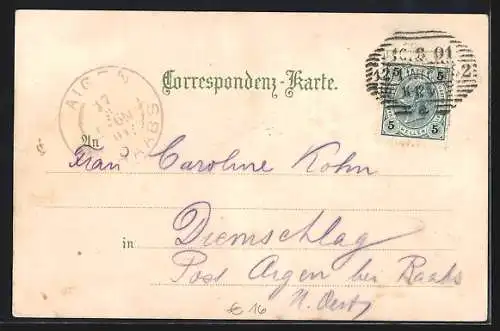 16.8.01
5 5
5 HELLER 5
AIGEN
17
RAABS
Correspondenz-Karte.
An
Frau Caroline Kohn
in Diemschlag
Post Aigen bei Raabs
N. Oest.
€ 16